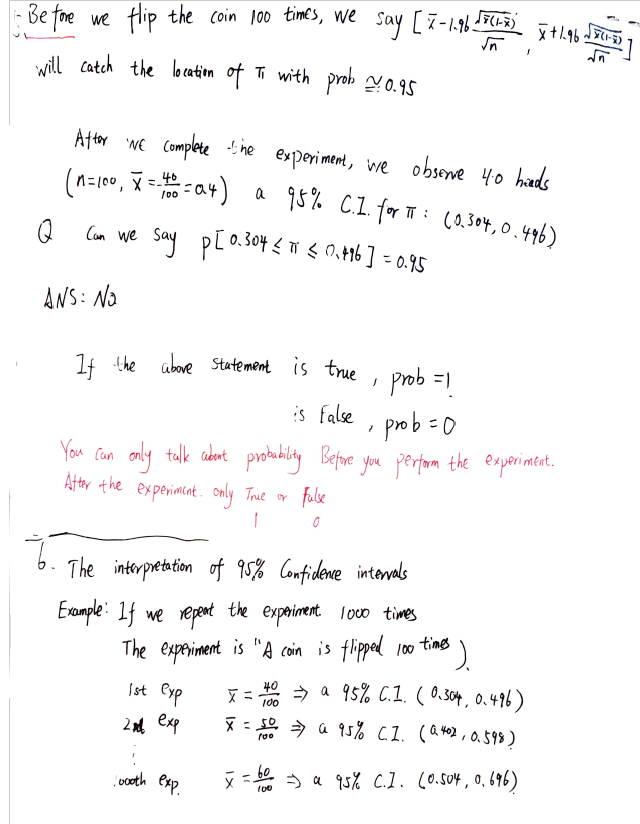 5. Before we flip the coin 100 times, we say [x̄-1.96 √x̄(1-x̄)/√n , x̄+1.96 √x̄(1-x̄)/√n]
will catch the location of π with prob ≅0.95
After we complete the experiment, we observe 40 heads
(n=100, x̄=40/100=0.4) a 95% C.I. for π: (0.304, 0.496)
Q Can we say p[0.304≤π≤0.496]=0.95
ANS: No
If the above statement is true, prob=1
is False, prob=0
You can only talk about probability Before you perform the experiment.
After the experiment. only True or false
1 0
6. The interpretation of 95% Confidence intervals
Example: If we repeat the experiment 1000 times
The experiment is "A coin is flipped 100 times)
1st exp x̄=40/100 ⇒ a 95% C.I. (0.304, 0.496)
2nd exp x̄=50/100 ⇒ a 95% C.I. (0.402, 0.598)
⋮
000th exp. x̄=60/100 ⇒ a 95% C.I. (0.504, 0.696)